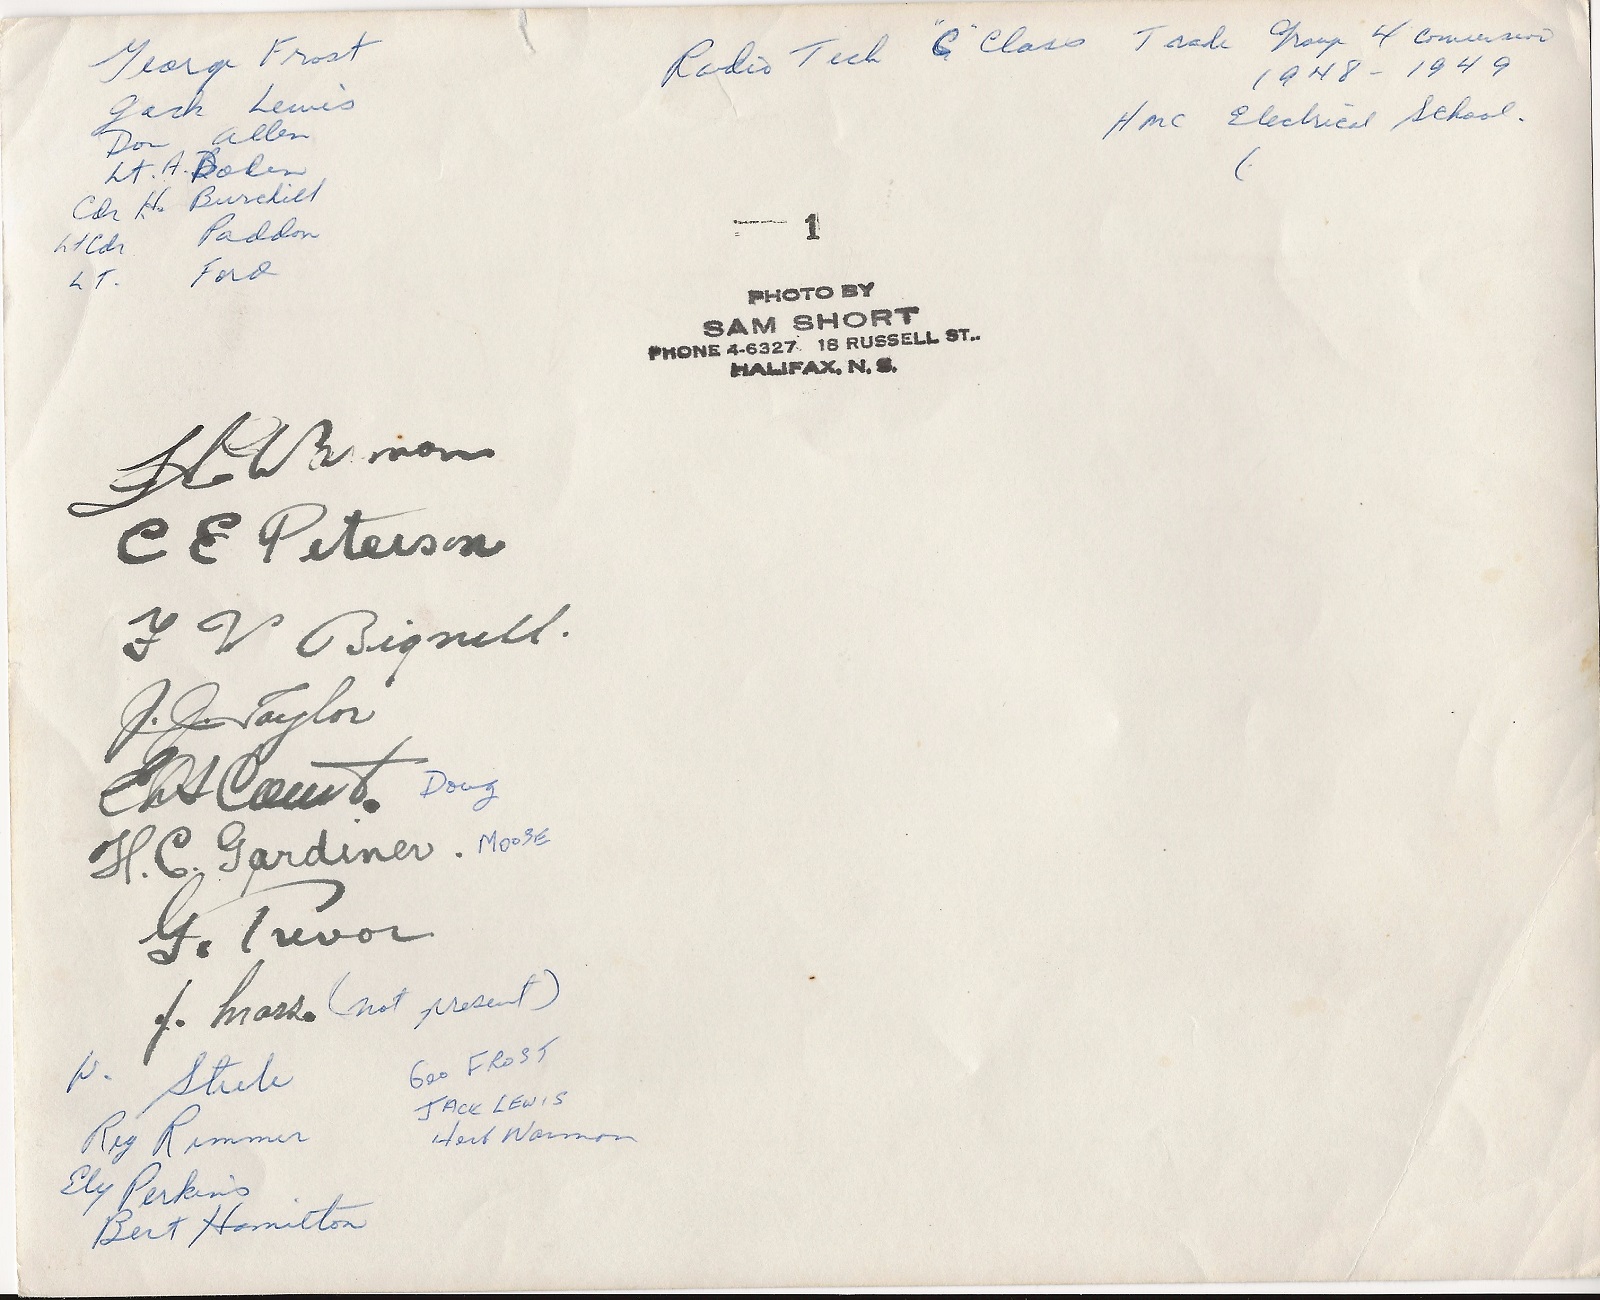 George Frost
Radio Tech "C" Class Trade Group 4 conversion
1948 - 1949
Jack Lewis
HMC Electrical School.
Don Allen
Lt. A. Boden
Cdr H. Burchill
Lt Cdr Paddon
LT. Ford
1
PHOTO BY
SAM SHORT
PHONE 4-6327 18 RUSSELL ST..
HALIFAX, N. S.
C E Peterson
F V Bignell.
J. J. Taylor
Doug
H. C. Gardiner. MOOSE
G. Trevor
J. (not present)
Steele
Geo FROST
JACK LEWIS
Reg Rimmer
Herb Warmon
Ely Perkins
Bert Hamilton